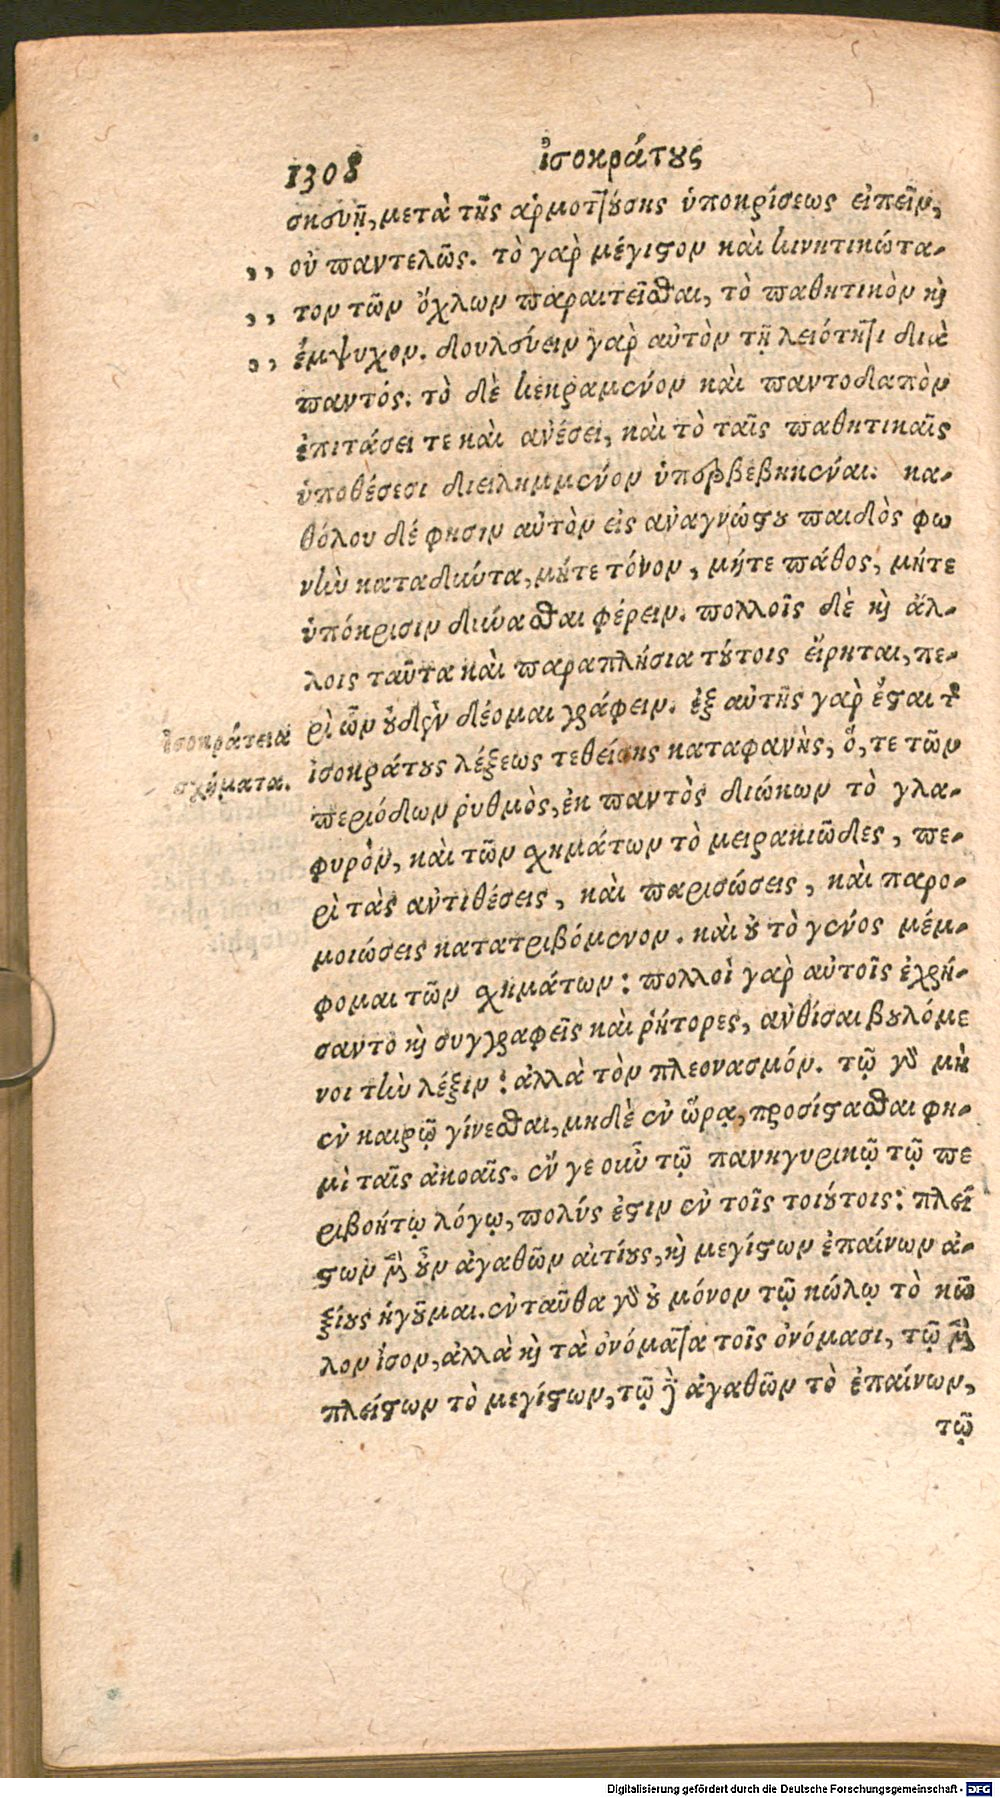 1308 ἰσοκράτους
σκευῇ, μετὰ τῆς ἁρμοττούσης ὑποκρίσεως εἰπεῖν,
,, οὐ παντελῶς. τὸ γὰρ μέγιστον καὶ κινητικώτα-
,, τον τῶν ὄχλων παραιτεῖσθαι, τὸ παθητικὸν καὶ
,, ἔμψυχον. δουλεύειν γὰρ αὐτὸν τῇ λειότητι διὰ
παντός. τὸ δὲ κεκραμένον καὶ παντοδαπὸν
ἐπιτάσει τε καὶ ἀνέσει, καὶ τὸ ταῖς παθητικαῖς
ὑποθέσεσι διειλημμένον ὑπερβεβηκέναι. κα-
θόλου δέ φησιν αὐτὸν εἰς ἀναγνώστου παιδὸς φω
νὴν καταδύντα, μήτε τόνον, μήτε πάθος, μήτε
ὑπόκρισιν δύνασθαι φέρειν. πολλοῖς δὲ καὶ ἄλ-
λοις ταῦτα καὶ παραπλήσια τούτοις εἴρηται, πε-
ρὶ ὧν οὐδὲν δέομαι γράφειν. ἐξ αὐτῆς γὰρ ἔσται τῆς
ἰσοκράτεια
σχήματα.
ἰσοκράτους λέξεως τεθείσης καταφανὴς, ὅ, τε τῶν
περιόδων ῥυθμὸς, ἐκ παντὸς διώκων τὸ γλα-
φυρὸν, καὶ τῶν σχημάτων τὸ μειρακιῶδες, πε-
ρὶ τὰς ἀντιθέσεις, καὶ παρισώσεις, καὶ παρο-
μοιώσεις κατατριβόμενον. καὶ οὐ τὸ γένος μέμ-
φομαι τῶν σχημάτων: πολλοὶ γὰρ αὐτοῖς ἐχρή-
σαντο καὶ συγγραφεῖς καὶ ῥήτορες, ἀνθίσαι βουλόμε
νοι τὴν λέξιν: ἀλλὰ τὸν πλεονασμόν. τῷ γὰρ μὴ
ἐν καιρῷ γίνεσθαι, μηδὲ ἐν ὥρᾳ, προσίστασθαι φη-
μὶ ταῖς ἀκοαῖς. ἔν γε οὖν τῷ πανηγυρικῷ τῷ πε
ριβοήτῳ λόγῳ, πολύς ἐστιν ἐν τοῖς τοιούτοις: πλεί
στων μὲν οὖν ἀγαθῶν αἰτίους, καὶ μεγίστων ἐπαίνων ἀ-
ξίους ἡγοῦμαι. ἐνταῦθα γὰρ οὐ μόνον τῷ κώλῳ τὸ κῶ
λον ἴσον, ἀλλὰ καὶ τὰ ὀνόματα τοῖς ὀνόμασι, τῷ μὲν
πλείστων τὸ μεγίστων, τῷ δὲ ἀγαθῶν τὸ ἐπαίνων,
τῷ
Digitalisierung gefördert durch die Deutsche Forschungsgemeinschaft - DFG